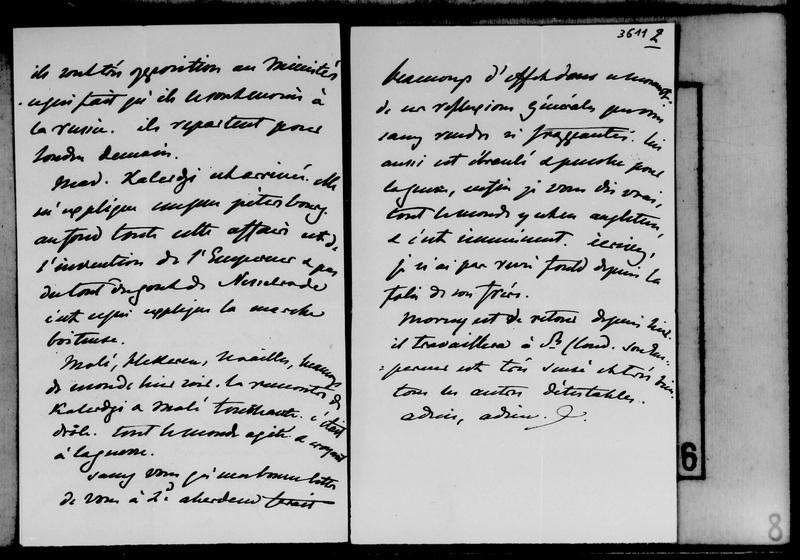 ils sont très opposition au Ministère
ce qui fait qu'ils le sont moins à
la russie. ils repartent pour
Londres demain.
Mad. Kalerdji est arrivée. elle
m'explique un peu pétersbourg.
au fond toute cette affaire est de
l'invention de l'Empereur & pas
du tout du gout de Nesselrode
c'est ce qui explique la marche
boiteuse.
Molé, Hekeren, Noailles, beaucoup
de monde hier soir. la rencontre de
Kalerdji & Molé touchante. c'était
drôle. tout le monde agité & croyant
à la guerre.
savez vous qu'une bonne lettre
de vous à Ld aberdeen ferait
3611 2
beaucoup d'effet dans ce moment.
de ces reflexions générales que vous
savez rendre si frappantes. lui
aussi est ébranlé & penche pour
la guerre, enfin je vous dis vrai,
tout le monde y est en angleterre,
& c'est imminent. écrivez,
je n'ai pas revu fould depuis la
folie de son frère.
Morny est de retour depuis hier.
il travaillera à St Cloud. son
est très sensé et très bien.
tous les autres détestables.
adieu, adieu.
6
8